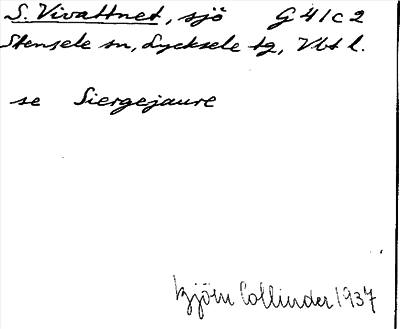 S. Vivattnet, sjö G 41c2
Stensele sn, Lycksele tg, Vbt l.
se Siergejaure
Björn Collinder 1937